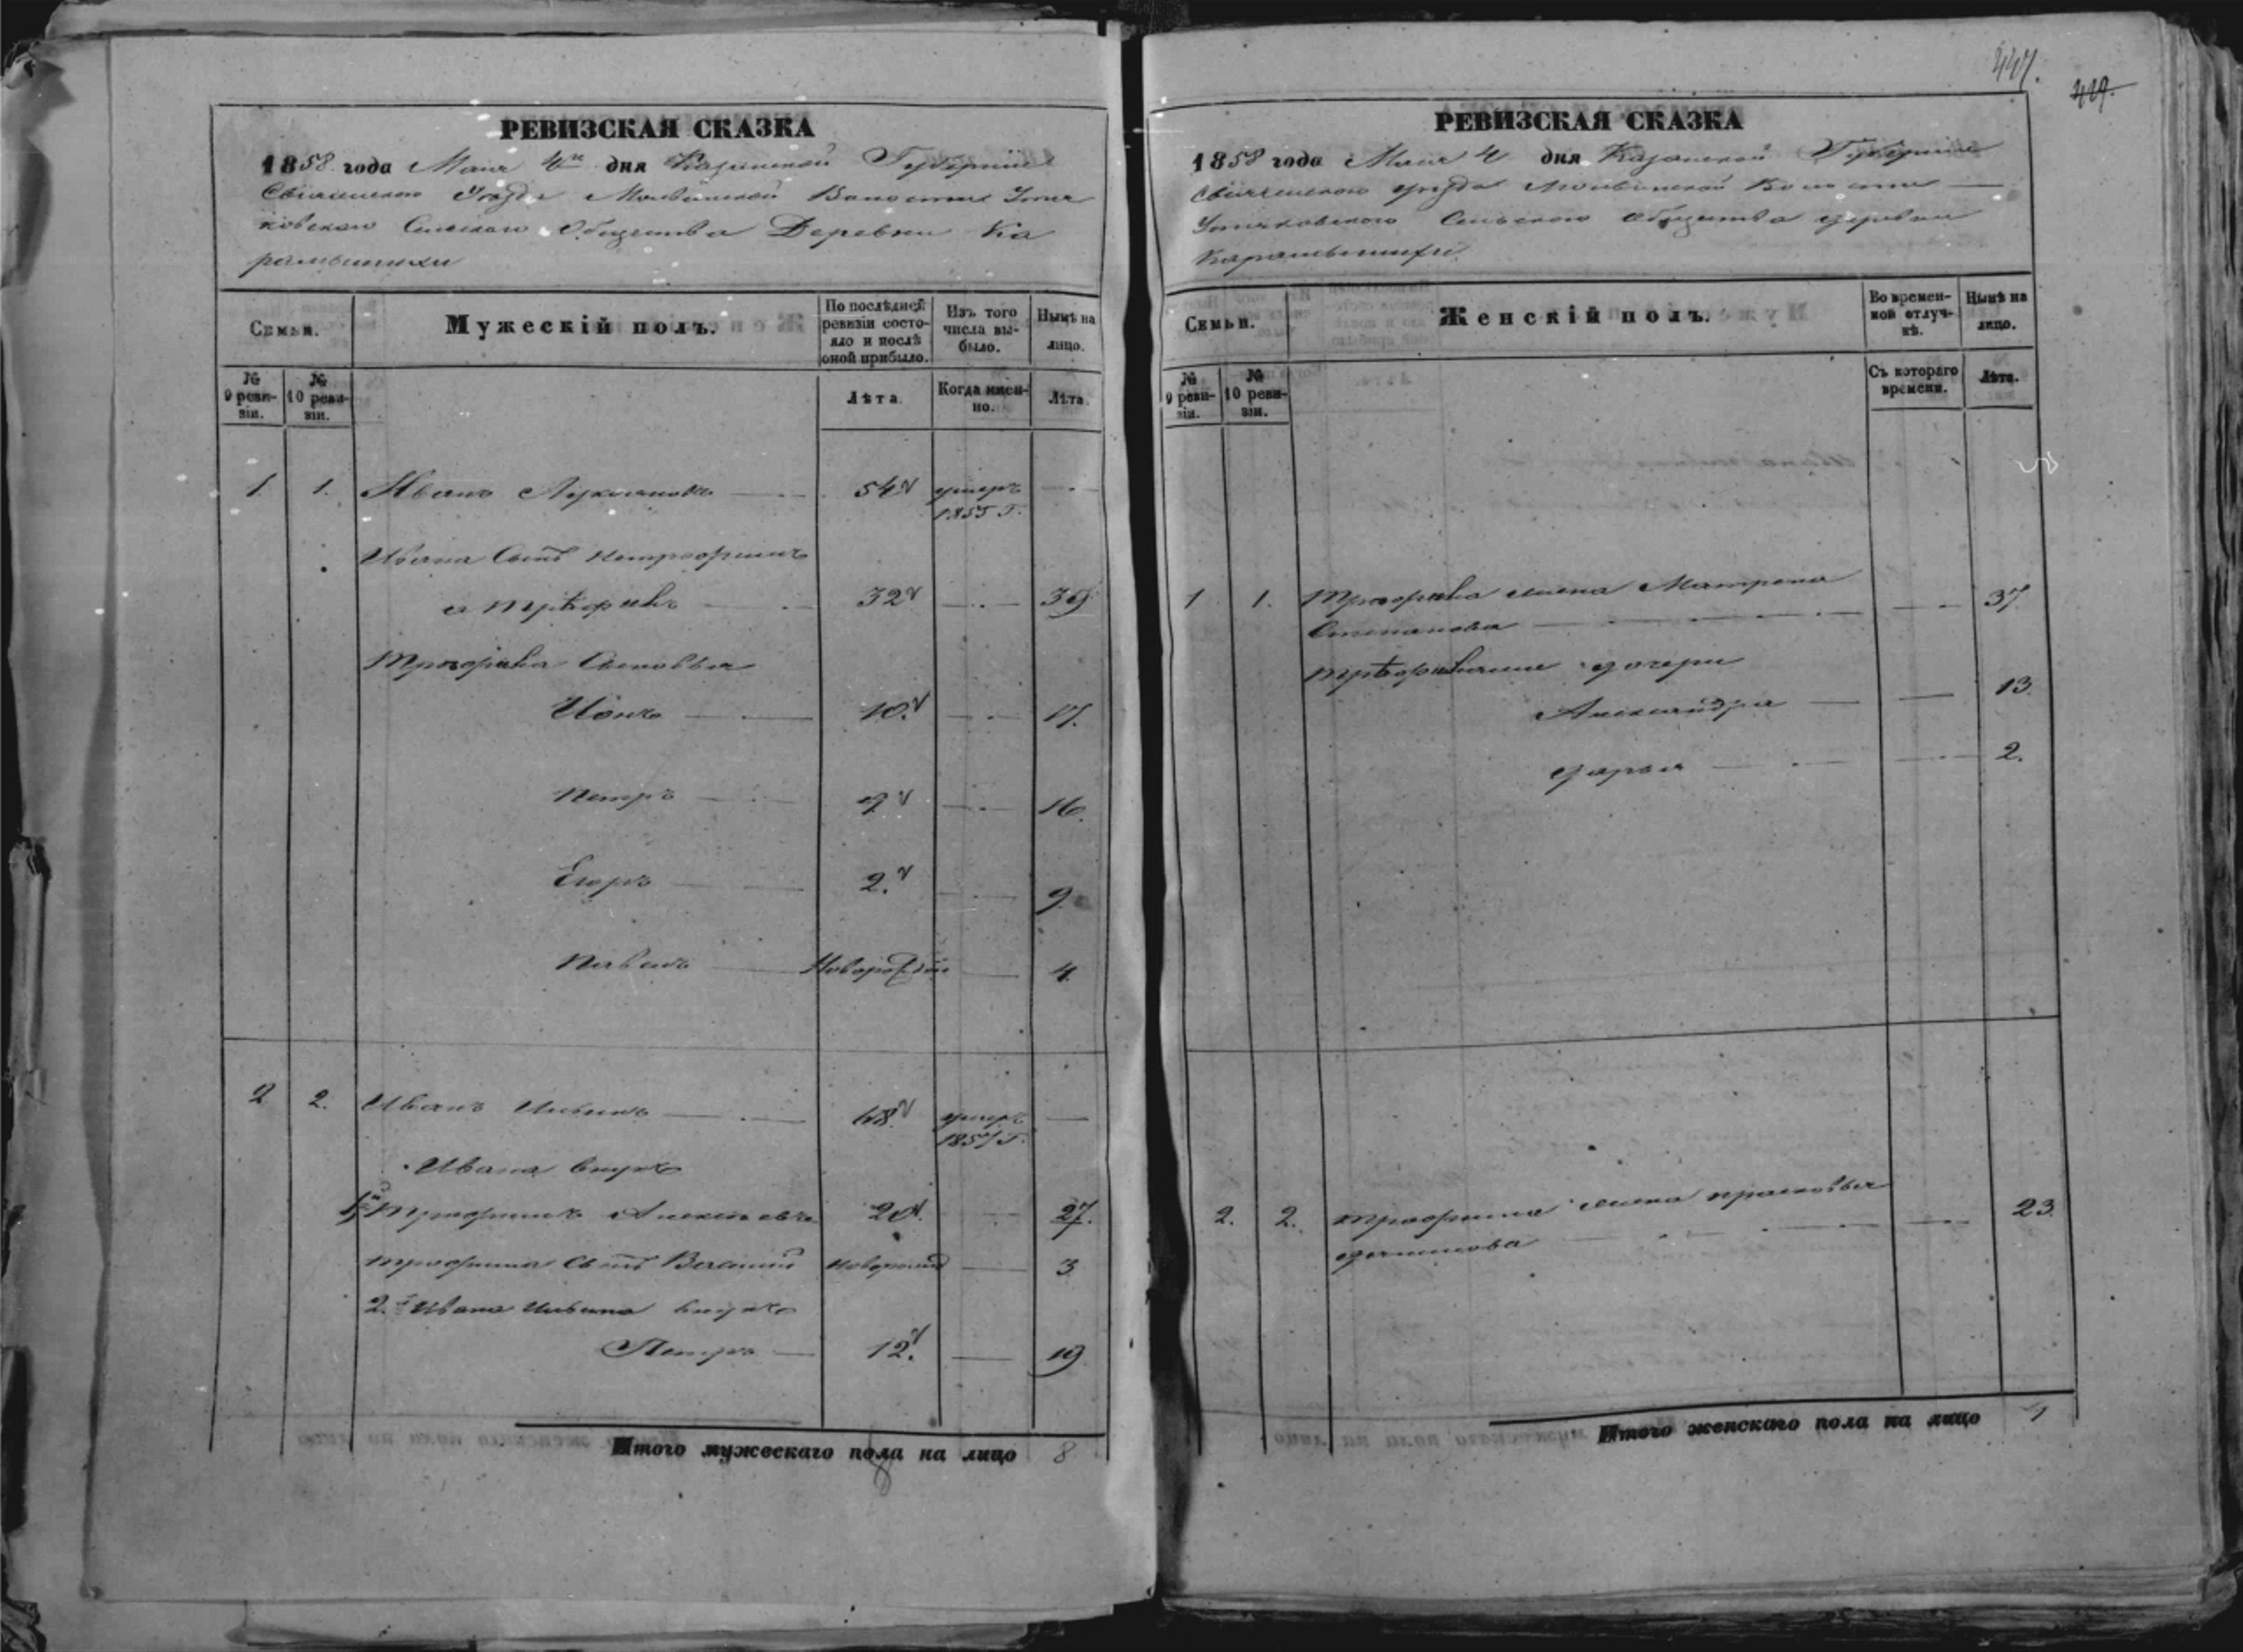 447.
449.
РЕВИЗСКАЯ СКАЗКА
1858 года Мая 4го дня Казанской Губерніи
Свіяжскаго Уѣзда Молвинской Волости Утя
ковскаго Сельскаго Общества Деревни Ка
рамышихи
Семьи.
Мужескій полъ.
По послѣдней ревизіи состояло и послѣ оной прибыло.
Изъ того числа выбыло.
Нынѣ на лицо.
№ 9 ревизіи.
№ 10 ревизіи.
Лѣта.
Когда именно.
Лѣта.
1. 1. Иванъ 54 умеръ 1855 г.
Ивана Сынъ
32 39
Сыновья
10. 17.
Петръ 9 16.
Егоръ 2. 9
Павелъ Новорожден 4
2 2. Иванъ Ильинъ 48 умеръ 1857 г.
Ивана внукъ
1й Трофимъ Алексѣевъ 20 27.
Трофима Сынъ Василій новорожд 3
2й Ивана Ильина внукъ
Петръ 12. 19
Итого мужескаго пола на лицо 8
8
РЕВИЗСКАЯ СКАЗКА
1858 года Мая 4 дня Казанской Губерніи
Свіяжскаго уѣзда Молвинской Волости
Утяковскаго Сельскаго Общества деревни
Карамышихи
Семьи.
Женскій полъ.
Во временной отлучкѣ.
Нынѣ на лицо.
№ 9 ревизіи.
№ 10 ревизіи.
Съ котораго времени.
Лѣта.
1 1. жена Матрена
Степанова 37
дочери
Александра 13.
Дарья 2.
2. 2. Трофима жена Прасковья 23.
Итого женскаго пола на лицо 4